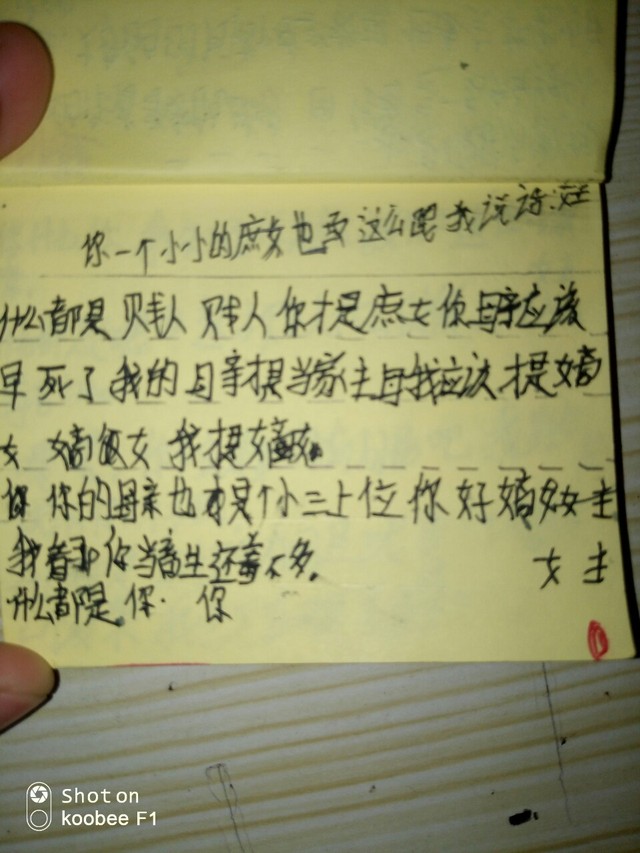 你一个小小的庶女也敢这么跟我说话
什么都是 贱人 贱人 你才是庶女你母亲应该
早死了我的母亲是当家主母我应该才是嫡
女 嫡 女 我是嫡女
你 你的母亲也才是个小三上位 你好嫡女
我看 你当畜生还差不多。 女主
什么都是 你 你
Shot on
koobee F1